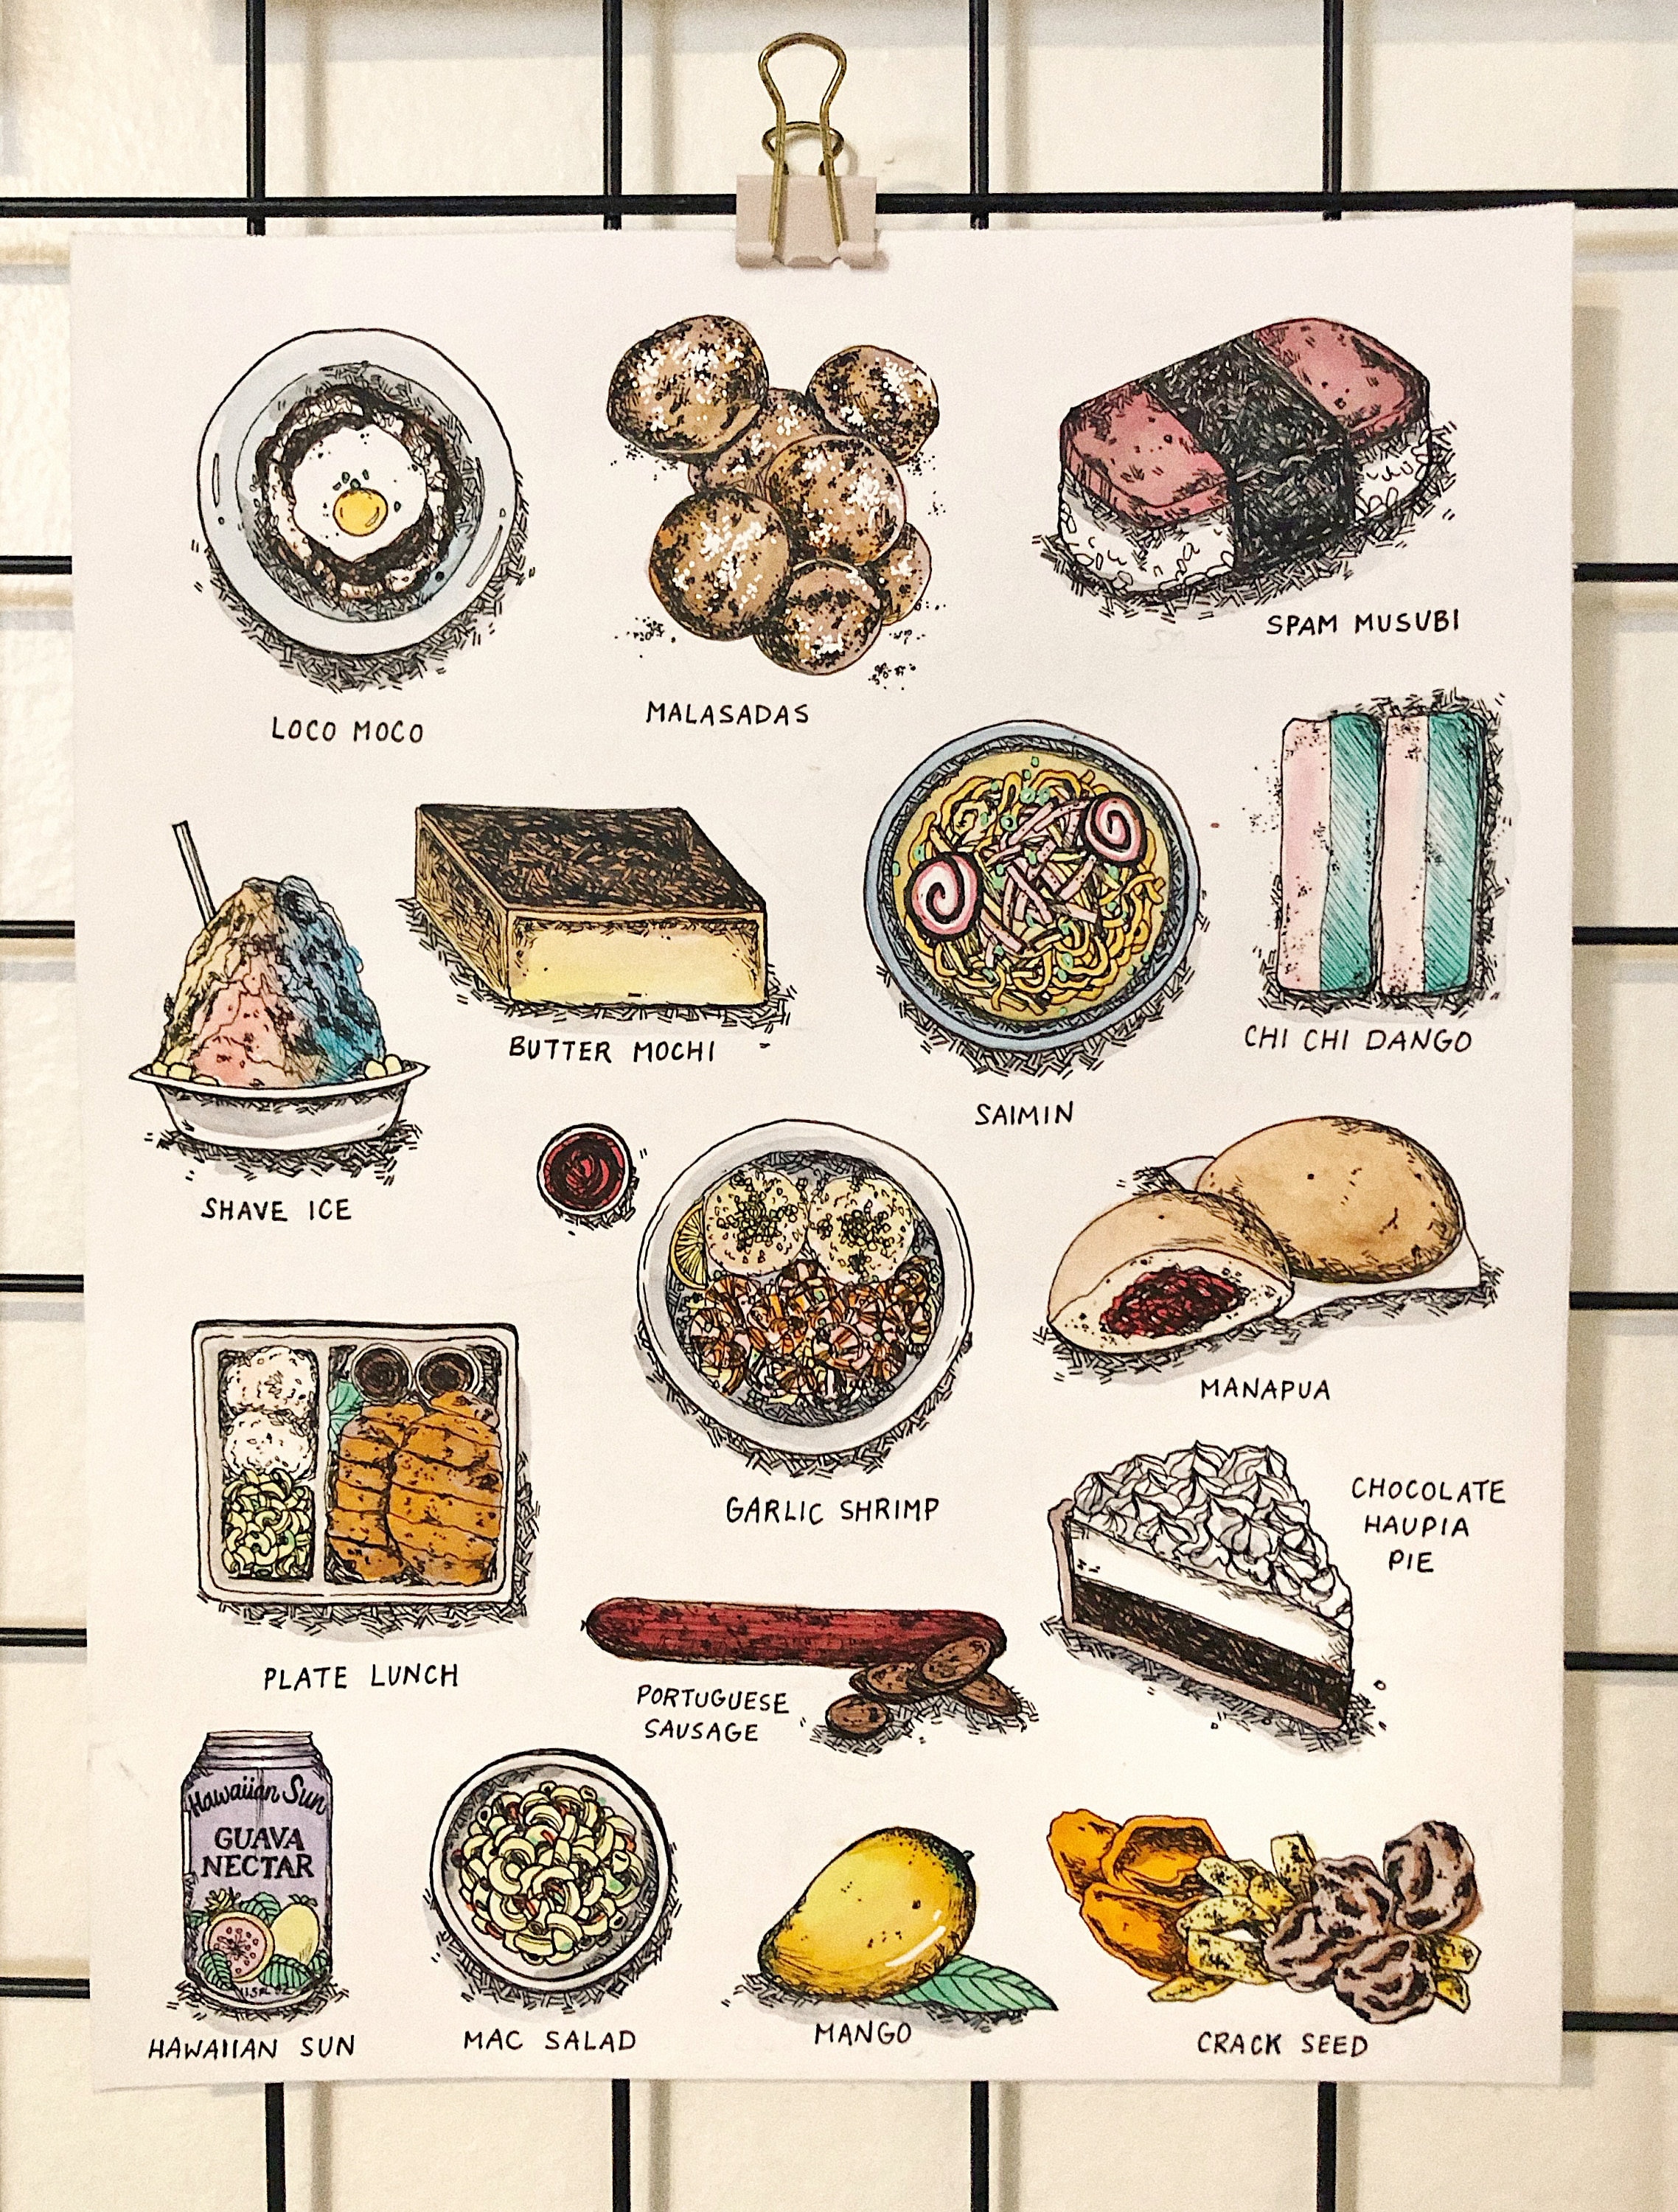 LOCO MOCO
MALASADAS
SPAM MUSUBI
SHAVE ICE
BUTTER MOCHI
SAIMIN
CHI CHI DANGO
PLATE LUNCH
GARLIC SHRIMP
MANAPUA
PORTUGUESE
SAUSAGE
CHOCOLATE
HAUPIA
PIE
Hawaiian Sun
GUAVA
NECTAR
HAWAIIAN SUN
MAC SALAD
MANGO
CRACK SEED